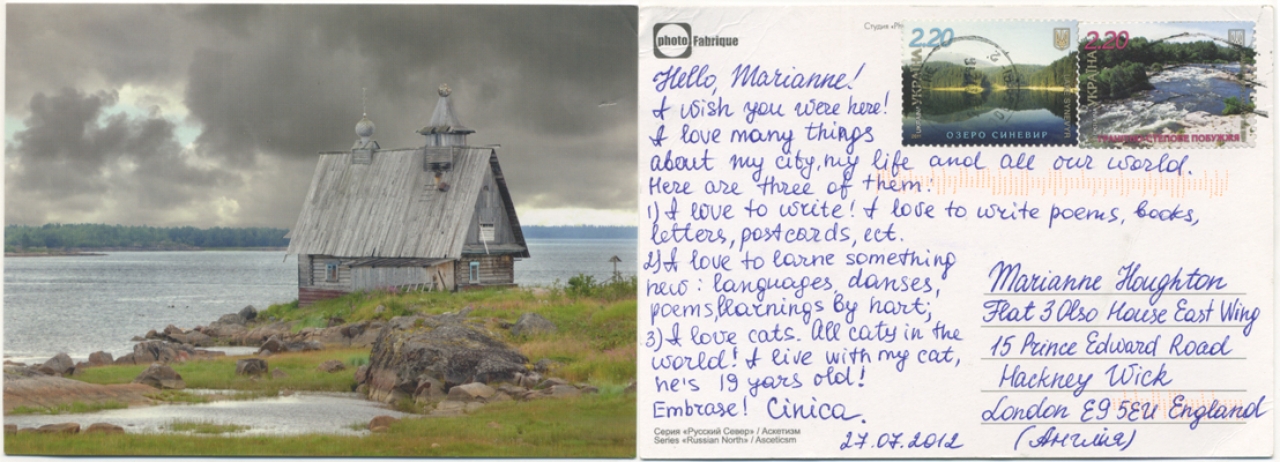 photo Fabrique
Студия «Ph
2.20
УКРАЇНА
ОЗЕРО СИНЕВИР
2.20
УКРАЇНА
ГРАНІТНО-СТЕПОВЕ ПОБУЖЖЯ
Hello, Marianne!
I wish you were here!
I love many things
about my city, my life and all our world.
Here are three of them:
1) I love to write! I love to write poems, books,
letters, postcards, ect.
2) I love to larne something
new: languages, danses,
poems, learnings by hart;
3) I love cats. All caty in the
world! I live with my cat,
he's 19 yars old!
Embrase! Cinica.
27.07.2012
Marianne Houghton
Flat 3 Olso House East Wing
15 Prince Edward Road
Hackney Wick
London E9 5EU England
(Англия)
Серия «Русский Север» / Аскетизм
Series «Russian North» / Asceticsm